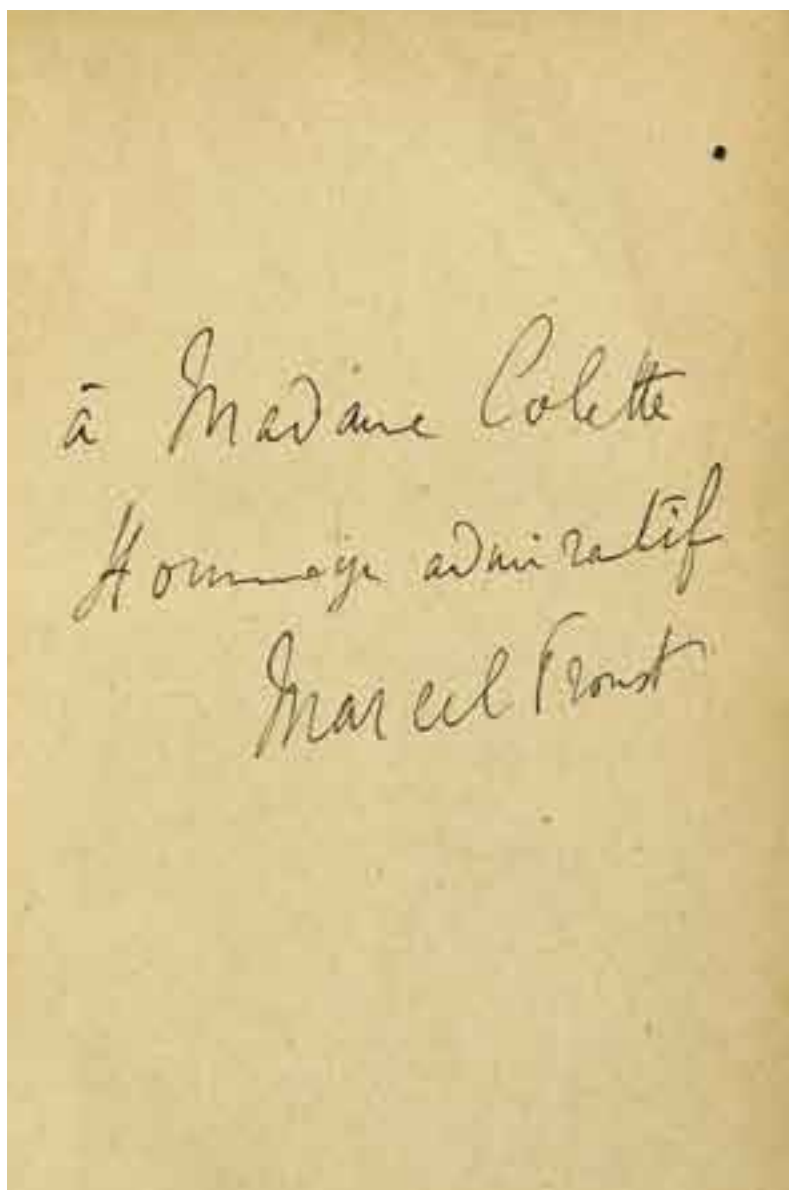 à Madame Colette
Hommage admiratif
Marcel Proust